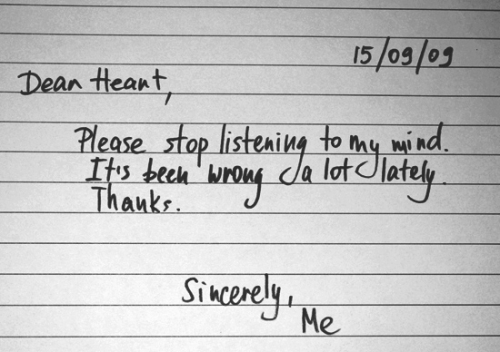 15/09/09
Dear Heart,
Please stop listening to my mind.
It's been wrong a lot lately.
Thanks.
Sincerely,
Me